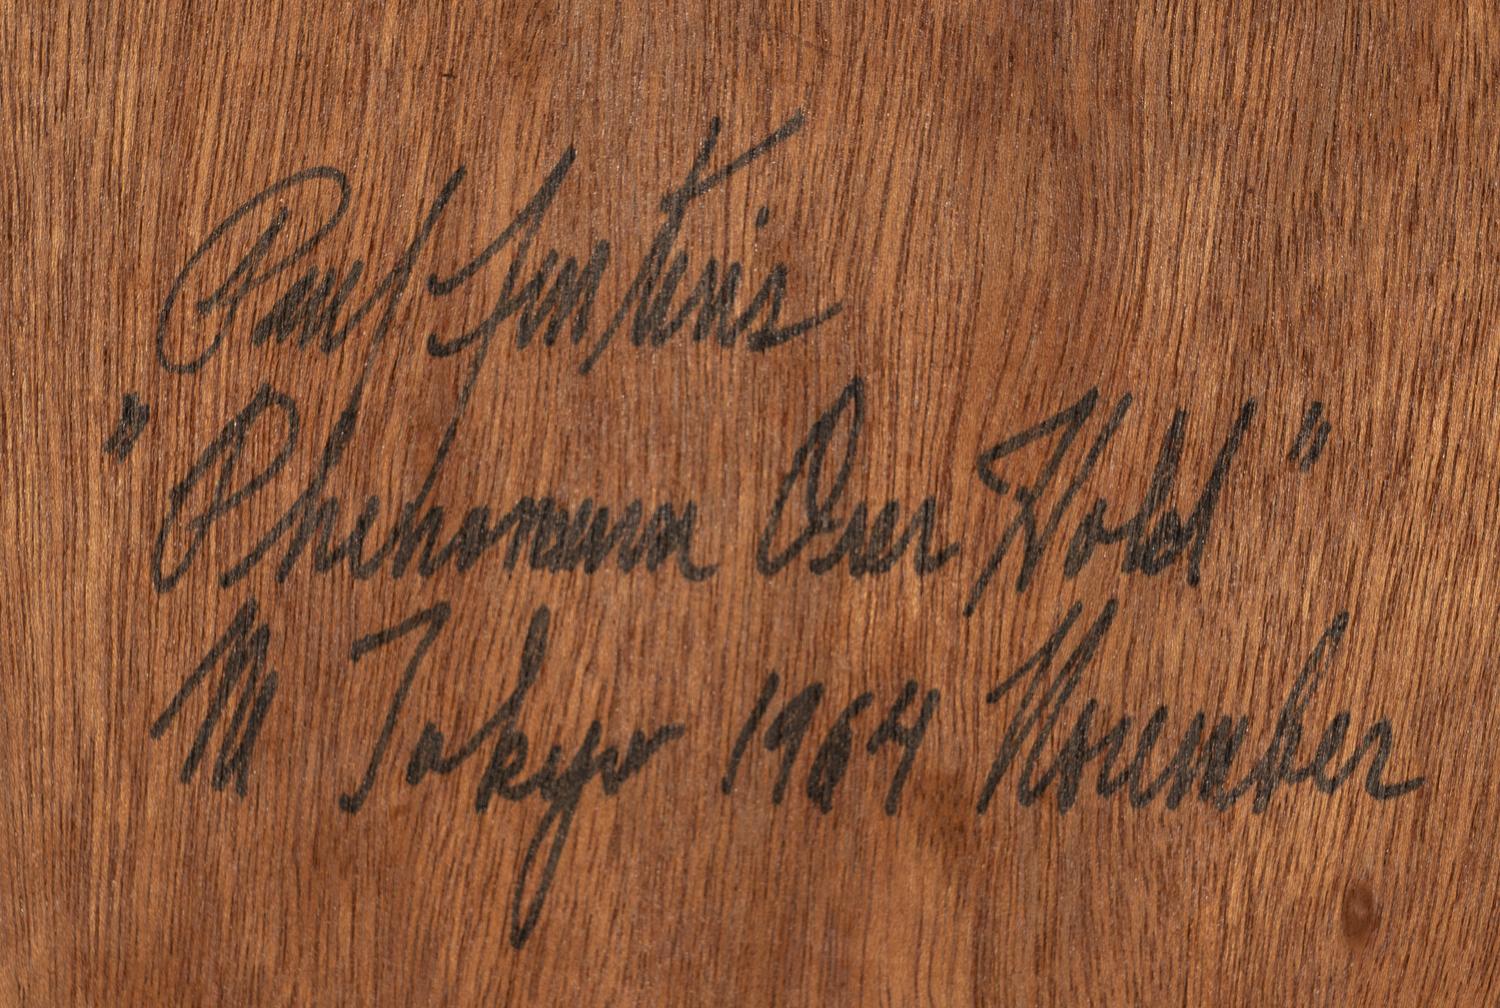 Paul Jenkins
"Phenomena Over Hold"
In Tokyo 1964 November